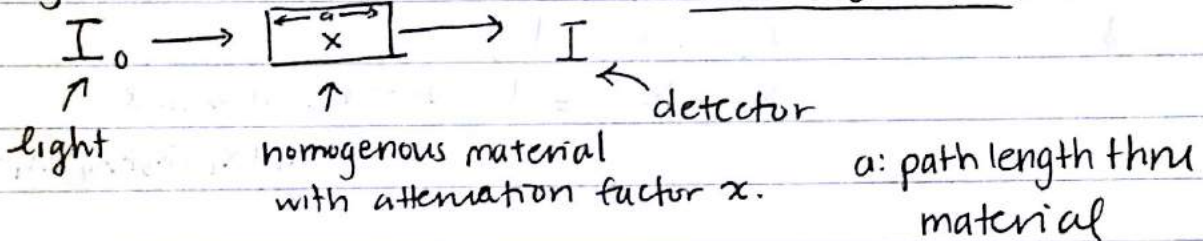 I₀ → a x → I
detector
light
homogenous material
with attenuation factor x.
a: path length thru
material